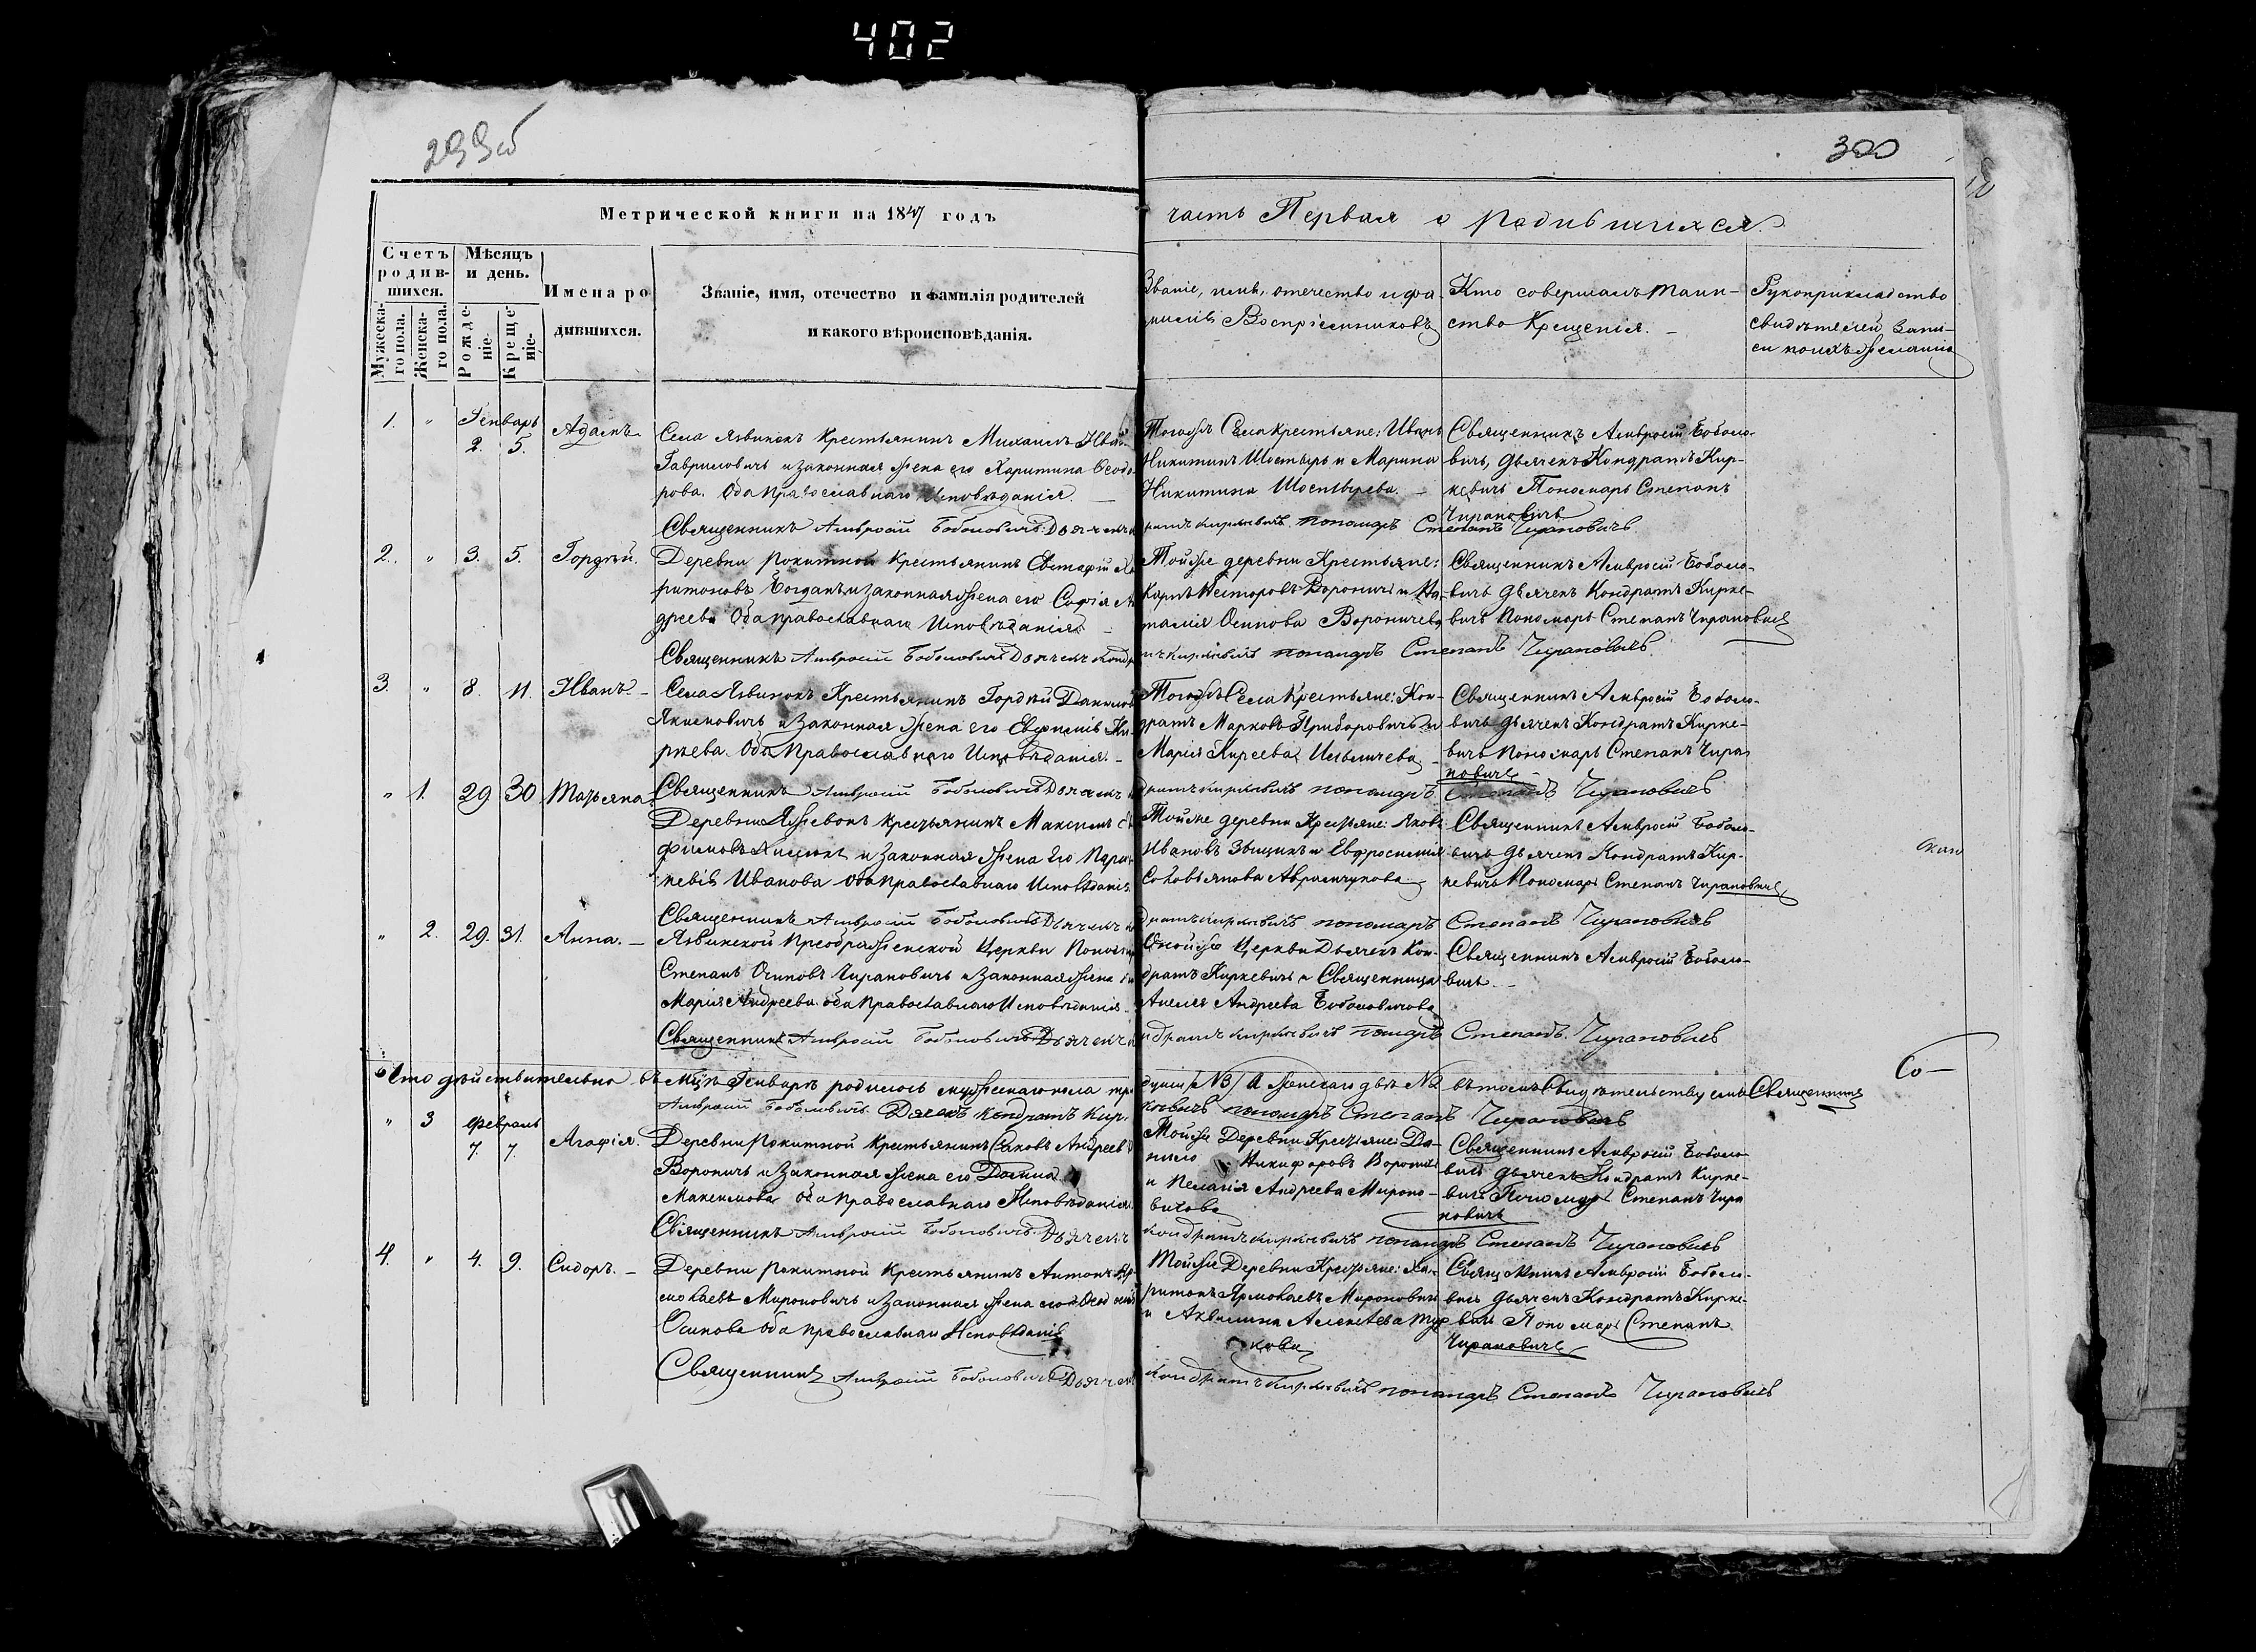 402
299об
300
Метрической книги на 1847 годъ
часть Первая о родившихся.
Счетъ родив-шихся.
Мужеска-го пола.
Женска-го пола.
Мѣсяцъ и день.
Рожде-ніе.
Креще-ніе.
Имена ро
дившихся.
Званіе, имя, отечество и фамилія родителей
и какого вѣроисповѣданія.
Званіе, имя, отечество и фа-
миліи Воспріемниковъ
Кто совершалъ таин-
ство Крещенія.
Рукоприкладство
свидѣтелей запи-
си по ихъ желанію
1. " Генварь
2. 5. Адамъ
Села Язвинокъ Крестьянинъ Михаилъ
Гавриловичъ и законная жена его Харитина Ѳеодо-
рова. Оба православнаго Исповѣданія.
Тогожъ Села крестьяне: Иванъ
Никитинъ Шостырь и Марина
Никитина Шостырева.
Священникъ Амвросій Боболо-
вичь, дьячекъ Кондратъ Кир-
кевичь Пономарь Степанъ
Чирановичь
Священникъ Амвросій Боболовичъ Дьячекъ
Киркевичъ пономарь Степанъ Чирановичъ
2. " 3. 5. Гордѣй.
Деревни Рокитной крестьянинъ Евстафій Ха
ритоновъ Богданъ и законная жена его Софія Ан
дреева Оба православнаго Исповѣданія.
Тойже деревни Крестьяне:
Карпъ Несторовъ Вороничь и На-
талія Осипова Вороничева
Священникъ Амвросій Боболо-
вичь дьячекъ Кондратъ Кирке-
вичь Пономарь Степанъ Чирановичь
Священникъ Амвросій Боболовичъ Дьячекъ Конд
Киркевичъ пономарь Степанъ Чирановичъ
3. " 8. 11. Иванъ
Села Язвинокъ Крестьянинъ Гордѣй Данилов
Якимовичъ и законная жена его Евфимія Ки-
рѣева. Оба Православнаго Исповѣданія.
Тогожъ Села Крестьяне: Кон-
дратъ Марковъ Приборовичь и
Марія Киреева
Священникъ Амвросій Боболо-
вичь дьячекъ Кондратъ Кирке-
вичь Пономарь Степанъ Чира
новичь
Священникъ Амвросій Боболовичъ Дьячекъ
Киркевичъ пономарь Степанъ Чирановичъ
" 1. 29 30 Татьяна
Деревни Яжевокъ крестьянинъ Максимъ
и законная жена его Пара
кевія Иванова оба православнаго Исповѣданія.
Тойже деревни Крестьяне: Яковъ
Ивановъ и Евфросинія
Аврамчукова
Священникъ Амвросій Боболо-
вичь дьячекъ Кондратъ Кир-
кевичь Пономарь Степанъ Чирановичь
Священникъ Амвросій Боболовичъ Дьячекъ
дратъ Киркевичъ пономарь Степанъ Чирановичъ
" 2. 29. 31. Анна.
Язвинской Преображенской Церкви Пономарь
Степанъ Осиповъ Чирановичь и законная жена
Марія Андреева оба православнаго Исповѣданія.
Оной же Церкви Дьячекъ Кон-
дратъ Киркевичь и Священница
Андреева Боболовичова
Священникъ Амвросій Боболо-
вичь.
Священникъ Амвросій Боболовичъ Дьячекъ
дратъ Киркевичъ пономарь Степанъ Чирановичъ
Что дѣйствительно въ Мцѣ Генварѣ родилось мужескаго пола три
души №3 А женскаго двѣ №2 въ томъ Свидѣтельствуемъ Священникъ
Амвросій Боболовичъ Дьячекъ Кондратъ Кир
кевичъ пономарь Степанъ Чирановичъ
" 3 Февраль
7. 7. Агафія.
Деревни Рокитной крестьянинъ Яковъ Андреевъ
Вороничь и законная жена его Домна
Максимова оба православнаго Исповѣданія
Тойже Деревни Крестьяне: Да-
нило Никифоровъ Вороничь
и Пелагія Андреева Мироно-
вичова
Священникъ Амвросій Боболо
вичь дьячекъ Кондратъ Кирке-
вичь Пономарь Степанъ Чира
новичь
Священникъ Амвросій Боболовичъ Дьячекъ
Кондратъ Киркевичъ пономарь Степанъ Чирановичъ
4. " 4. 9. Сидоръ.
Деревни Рокитной Крестьянинъ Антонъ Яр
молаевъ Мироновичь и законная жена его
Осипова оба православнаго Исповѣданія
Тойже Деревни Крестьяне: Ха-
ритонъ Ярмолаевъ Мироновичь
и Акилина Алексѣева
кова
Священникъ Амвросій Боболо-
вичь дьячекъ Кондратъ Кирке-
вичь Пономарь Степанъ
Чирановичь
Священникъ Амвросій Боболовичъ Дьячекъ
Кондратъ Киркевичъ пономарь Степанъ Чирановичъ
Со—